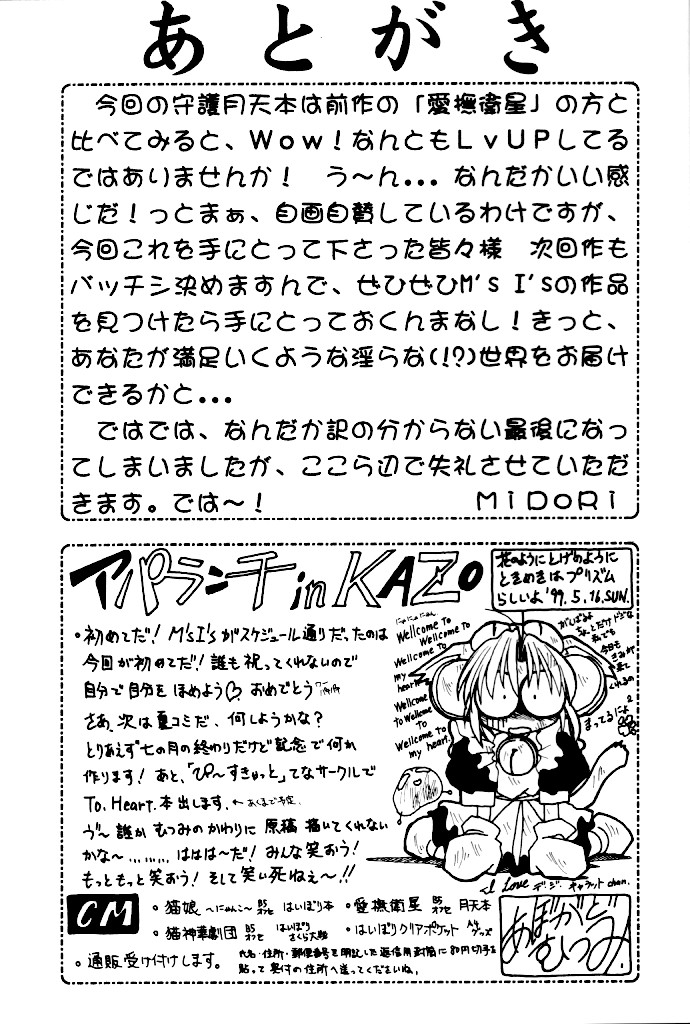 あとがき
　今回の守護月天本は前作の「愛撫衛星」の方と
比べてみると、Wow！なんともLvUPしてる
ではありませんか！　う〜ん...なんだかいい感
じだ！っとまぁ、自画自賛しているわけですが、
今回これを手にとって下さった皆々様　次回作も
バッチシ決めますんで、ぜひぜひM's I'sの作品
を見つけたら手にとっておくんまなし！きっと、
あなたが満足いくような淫らな(!?)世界をお届け
できるかと...
　ではでは、なんだか訳の分からない最後になっ
てしまいましたが、ここら辺で失礼させていただ
きます。では〜！　MiDORi
アパランチ in KAZO
花のようにとげのように
ときめきはプリズム
らしいよ '99. 5. 16. SUN.
・初めてだ！M'sI'sがスケジュール通りだったのは
今回が初めてだ！誰も祝ってくれないので
自分で自分をほめよう♡ おめでとう
さあ、次は夏コミだ、何しようかな？
とりあえず七の月の終わりだけど記念で何か
作ります！あと、「ぴ〜すきゅっと」てなサークルで
To. Heart. 本出します。←あくまで予定。
う〜 誰か むつみのかわりに 原稿 描いてくれない
かな〜 ......... ははは〜だ！みんな笑おう！
もっともっと笑おう！そして笑い死ねぇ〜!!
Wellcome To
Wellcome To
Wellcome To
my heart
Wellcome
To Wellcome
To
Wellcome To
my heart.
がんばるよ
ちょとだけドジな
私でも
今日も
きみが
来て
くれるの
まってるにょ
I Love デ・ジ・キャラット chan.
CM
・猫娘 〜にゃんこ〜 B5 オフセ はいぼり本
・愛撫衛星 B5 オフセ 月天本
・猫神華劇団 B5 オフセ はいぼり さくら大戦
・はいぼりクリアポケット A4 グッズ
・通販受け付けします。
氏名・住所・郵便番号を明記した返信用封筒に80円切手を
貼って奥付の住所へ送ってくださいね。
あぼがど
むつみ